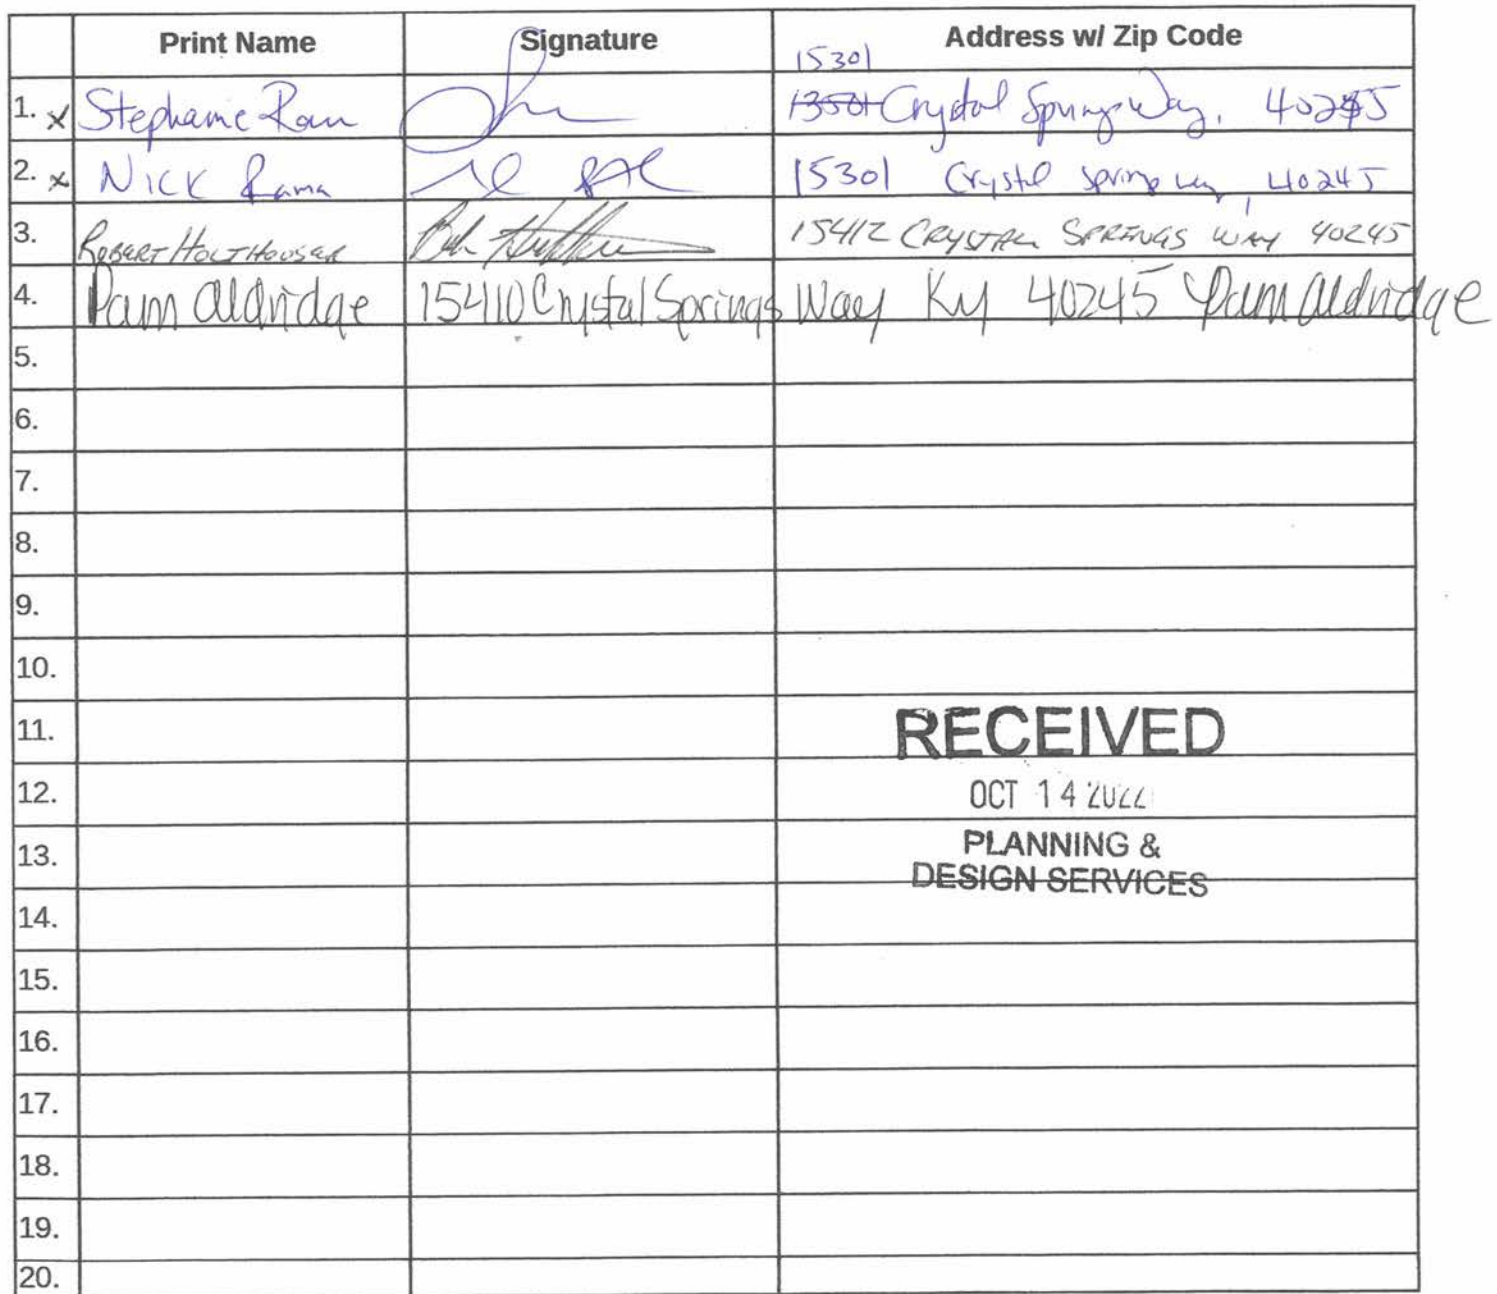 Print Name Signature Address w/ Zip Code
15301
1. x Stephanie 13501 Crystal Springs Way, 40245
2. x Nick Rama 15301 Crystal Springs Way, 40245
3. ROBERT HOLTHOUSER 15412 CRYSTAL SPRINGS WAY 40245
4. Pam Aldridge 15410 Crystal Springs Way Ky 40245 Pam Aldridge
5.
6.
7.
8.
9.
10.
11. RECEIVED
12. OCT 14 2022
13. PLANNING &
DESIGN SERVICES
14.
15.
16.
17.
18.
19.
20.